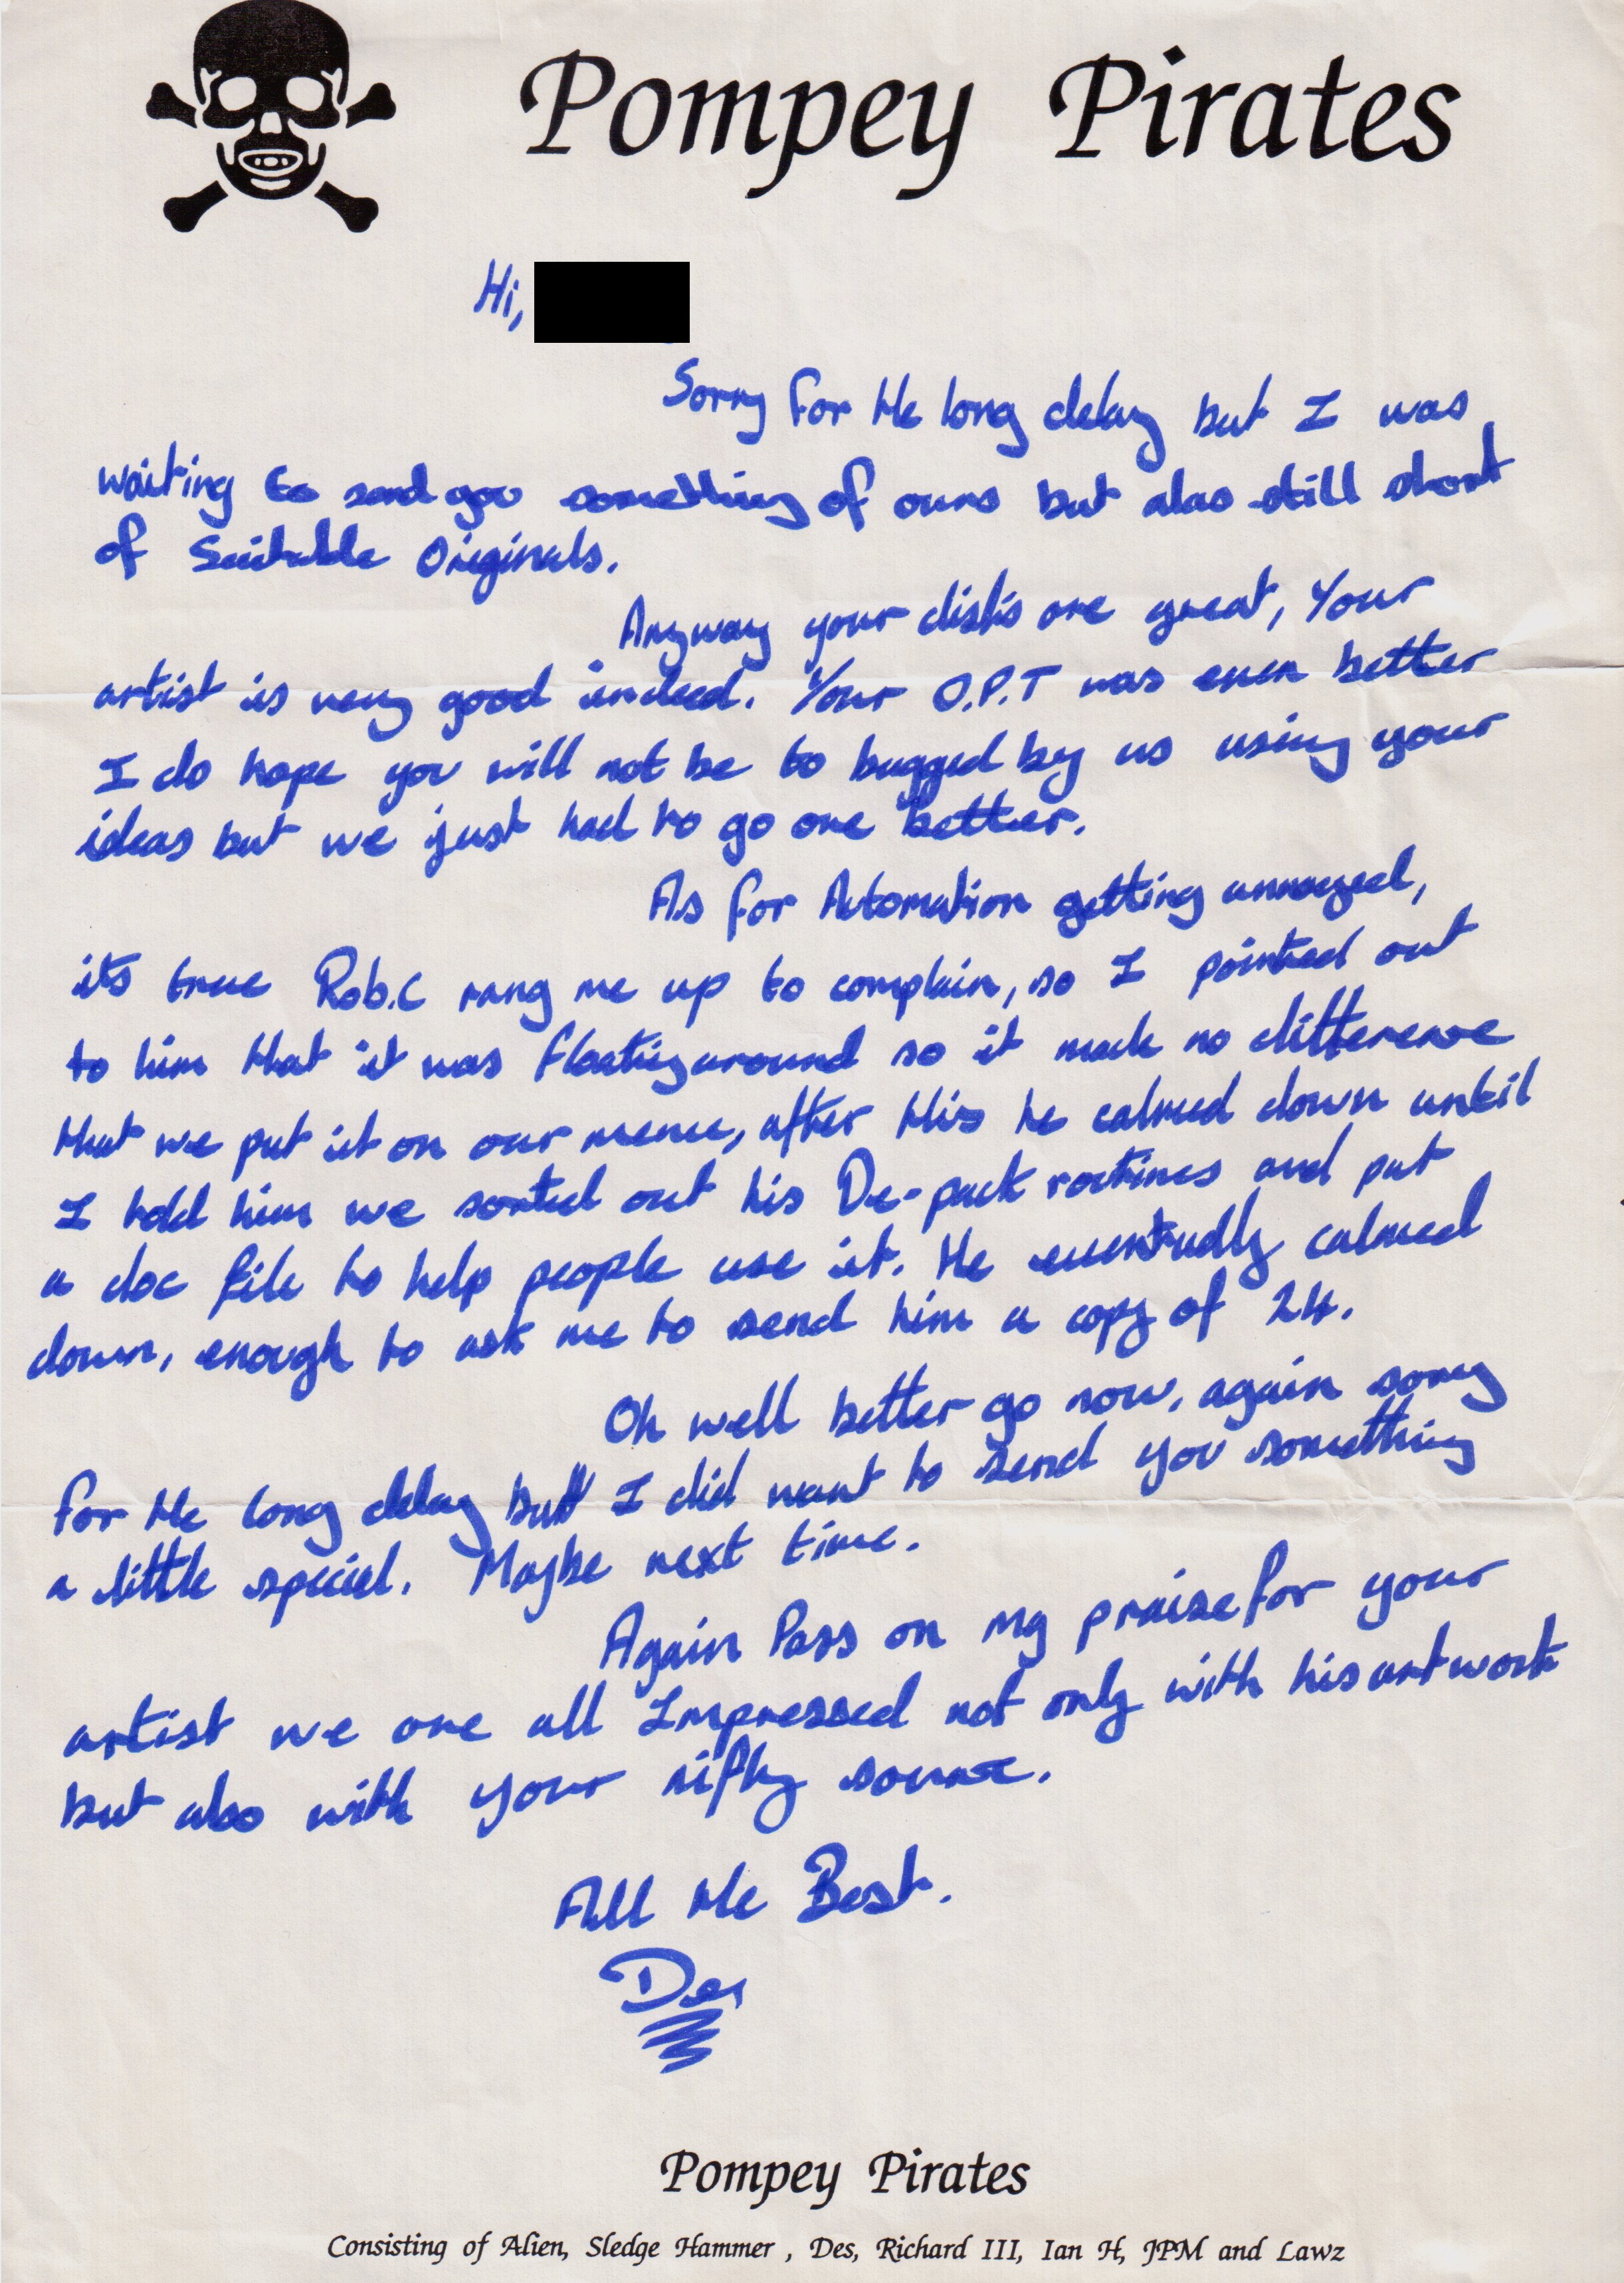 Pompey Pirates
Hi,
Sorry for the long delay but I was
waiting to send you something of ours but alas still short
of Suitable Originals.
Anyway your disks are great, Your
artist is very good indeed. Your O.P.T was even better
I do hope you will not be to bugged by us using your
ideas but we just had to go one better.
As for Automation getting annoyed,
its true Rob.C rang me up to complain, so I pointed out
to him that it was floating around so it made no difference
that we put it on our menu, after this he calmed down until
I told him we sorted out his De-pack routines and put
a doc file to help people use it. He eventually calmed
down, enough to ask me to send him a copy of 24.
Oh well better go now, again sorry
for the long delay but I did want to send you something
a little special. Maybe next time.
Again Pass on my praise for your
artist we are all Impressed not only with his artwork
but also with your nifty
All the Best.
Des
Pompey Pirates
Consisting of Alien, Sledge Hammer , Des, Richard III, Ian H, JPM and Lawz